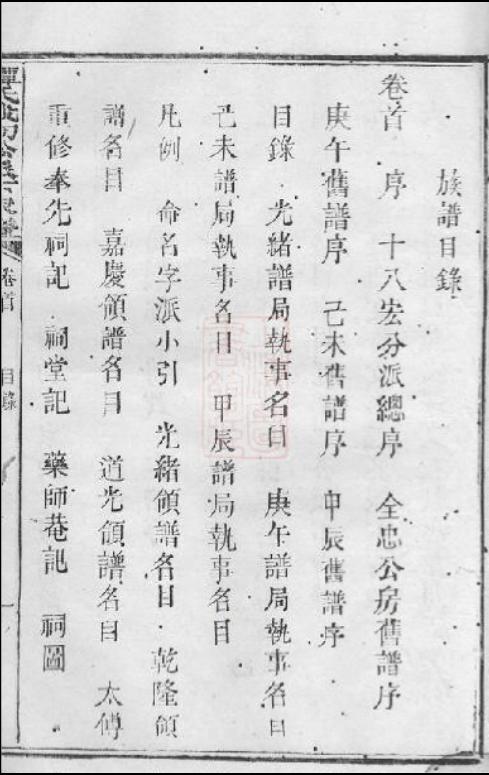 族譜目錄
卷首　序　十八宏分派總序　全忠公房舊譜序
庚午舊譜序　己未舊譜序　甲辰舊譜序
目錄　光緒譜局執事名目　庚午譜局執事名目
己未譜局執事名目　甲辰譜局執事名目
凡例　命名字派小引　光緒領譜名目　乾隆領
譜名目　嘉慶領譜名目　道光領譜名目　太傅
重修奉先祠記　祠堂記　藥師菴記　祠圖
卷首　目錄　一